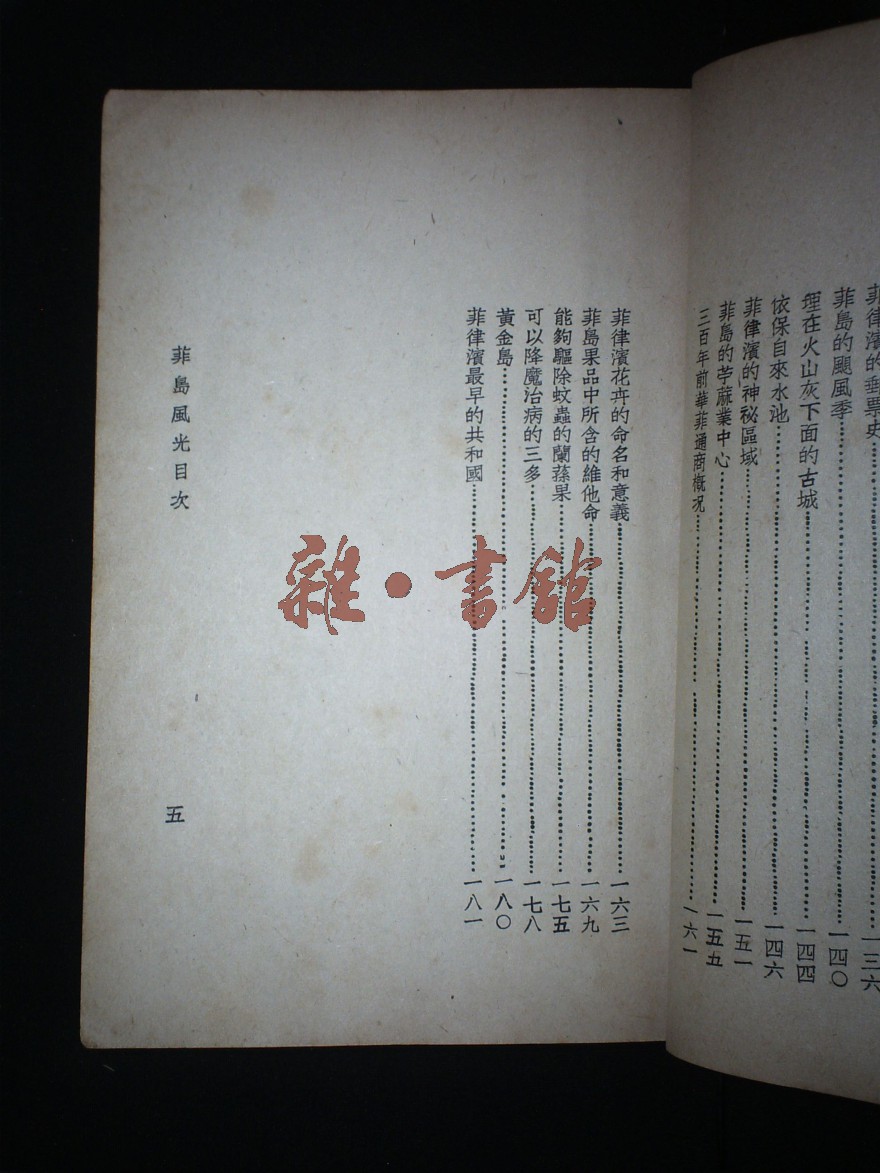 菲律濱的郵票史……一三六
菲島的颶風季……一四〇
埋在火山灰下面的古城……一四四
依保自來水池……一四六
菲律濱的神秘區域……一五一
菲島的苧蔴業中心……一五五
三百年前華菲通商概况……一六一
菲律濱花卉的命名和意義……一六三
菲島果品中所含的維他命……一六九
能夠驅除蚊蟲的蘭蓀果……一七五
可以降魔治病的三多……一七八
黃金島……一八〇
菲律濱最早的共和國……一八一
菲島風光目次
五
雜·書館